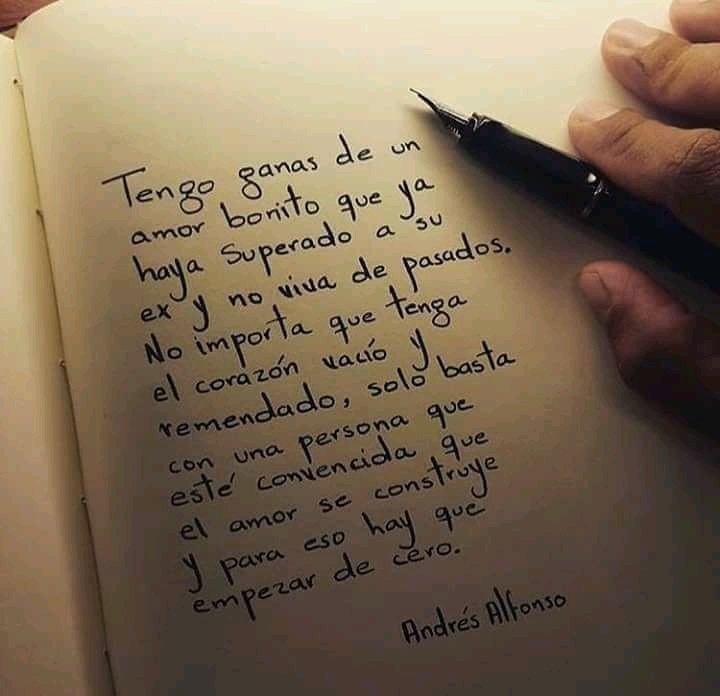 Tengo ganas de un
amor bonito que ya
haya superado a su
ex y no viva de pasados.
No importa que tenga
el corazón vació y
remendado, solo basta
con una persona que
esté convencida que
el amor se construye
y para eso hay que
empezar de cero.
Andrés Alfonso